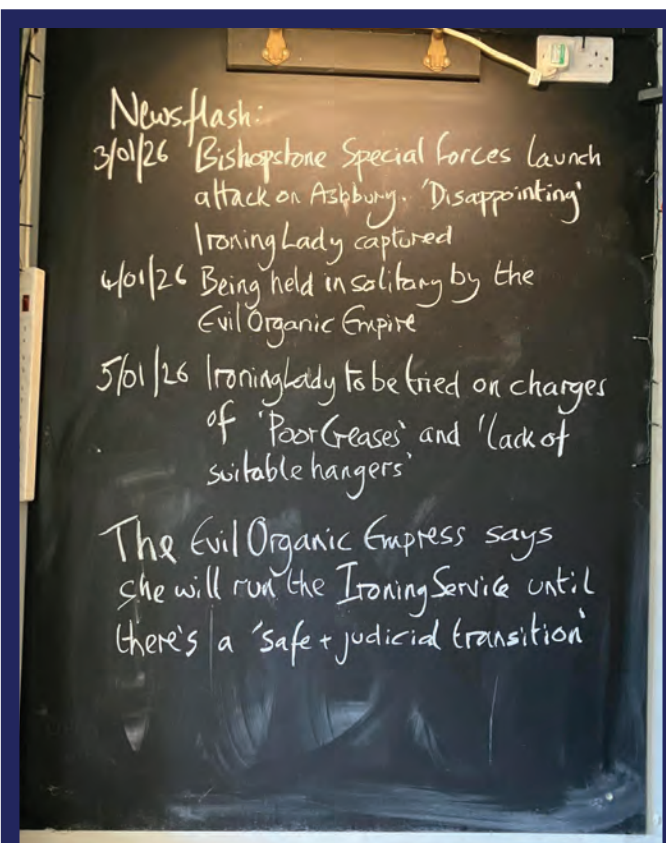 Newsflash:
3/01/26 Bishopstone Special Forces launch
attack on Ashbury. 'Disappointing'
Ironing Lady captured
4/01/26 Being held in solitary by the
Evil Organic Empire
5/01/26 Ironing Lady to be tried on charges
of 'Poor Creases' and 'lack of
suitable hangers'
The Evil Organic Empress says
she will run the Ironing Service until
there's a 'safe + judicial transition'